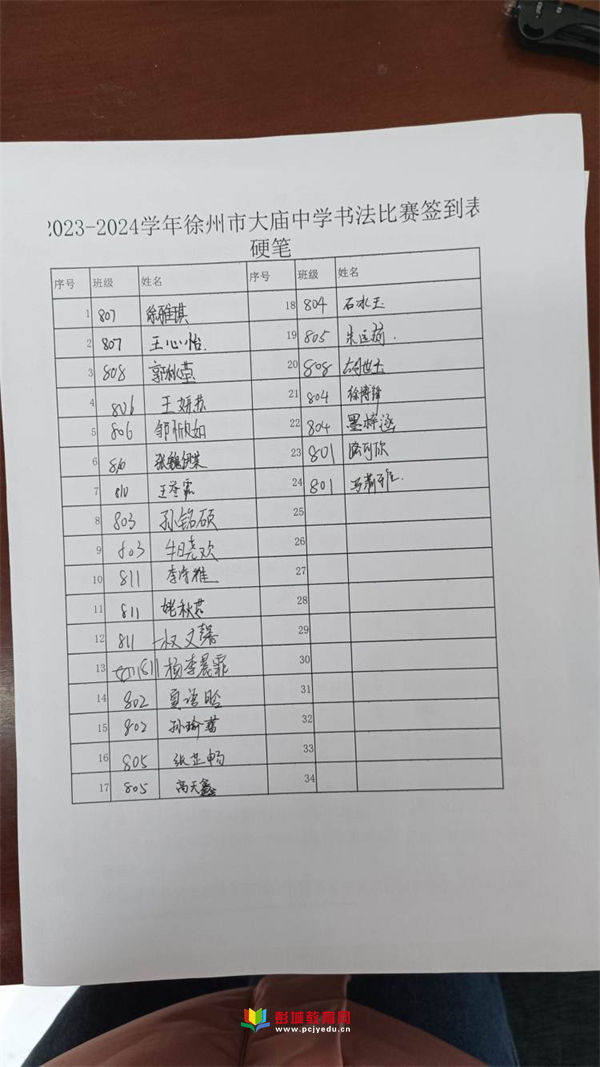 2023-2024学年徐州市大庙中学书法比赛签到表
硬笔
序号 班级 姓名 序号 班级 姓名
1 807 徐雅琪 18 804 石冰玉
2 807 王心怡 19 805
3 808 郭秋莹 20 808
4 806 王妍苏 21 804 徐博锋
5 806 邹欣如 22 804 墨梓涵
6 810 张魏伊莱 23 801
7 810 24 801
8 803 孙铭硕 25
9 803 牛晓欢 26
10 811 李梦雅 27
11 811 姥秋茹 28
12 811 权文馨 29
13 811 杨李晨霏 30
14 802 夏语晗 31
15 802 孙瑜蔓 32
16 805 张芷畅 33
17 805 高天鑫 34
彭城教育网
www.pcjyedu.cn